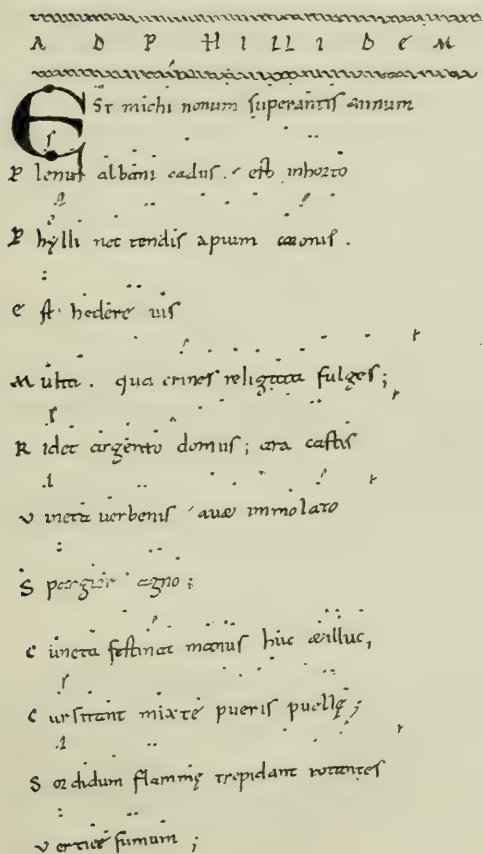 AD PHILLIDEM
EST michi nonum superantis annum
Plenus albani cadus. est inhorto
Phylli nectendis apium coronis.
est hedere uis
Multa. qua crines religata fulges;
Ridet argento domus; ara castis
uincta uerbenis auæ immolato
Spargier agno;
cuncta festinat manus huc æilluc,
cursitant mixte pueris puellę;
Sordidum flammę trepidant rotantes
uertice fumum;